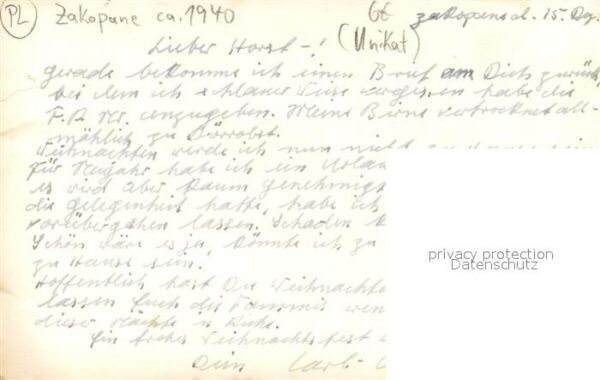 PL Zakopane ca. 1940 6t Zakopane d. 15. Dez.
(Unikat)
Lieber Horst -!
gerade bekomme ich einen Brief an Dich zurück
bei dem ich schlauer Weise vergessen habe die
F.P. Nr. anzugeben. Meine Birne vertrocknet all-
mählich zu Dörrobst.
Weihnachten werde ich nun nicht zu Hause sein
Für Neujahr habe ich ein Urlau
es wird aber kaum genehmigt
die Gelegenheit hatte, habe ich
vorübergehen lassen. Schaden
Schön wäre es ja, könnte ich zu
zu Hause sein.
Hoffentlich hast Du Weihnachte
lassen Euch die Tommis wen
dieser Nächte in Ruhe.
Ein frohes Weihnachtsfest
Dein Carl-
privacy protection
Datenschutz